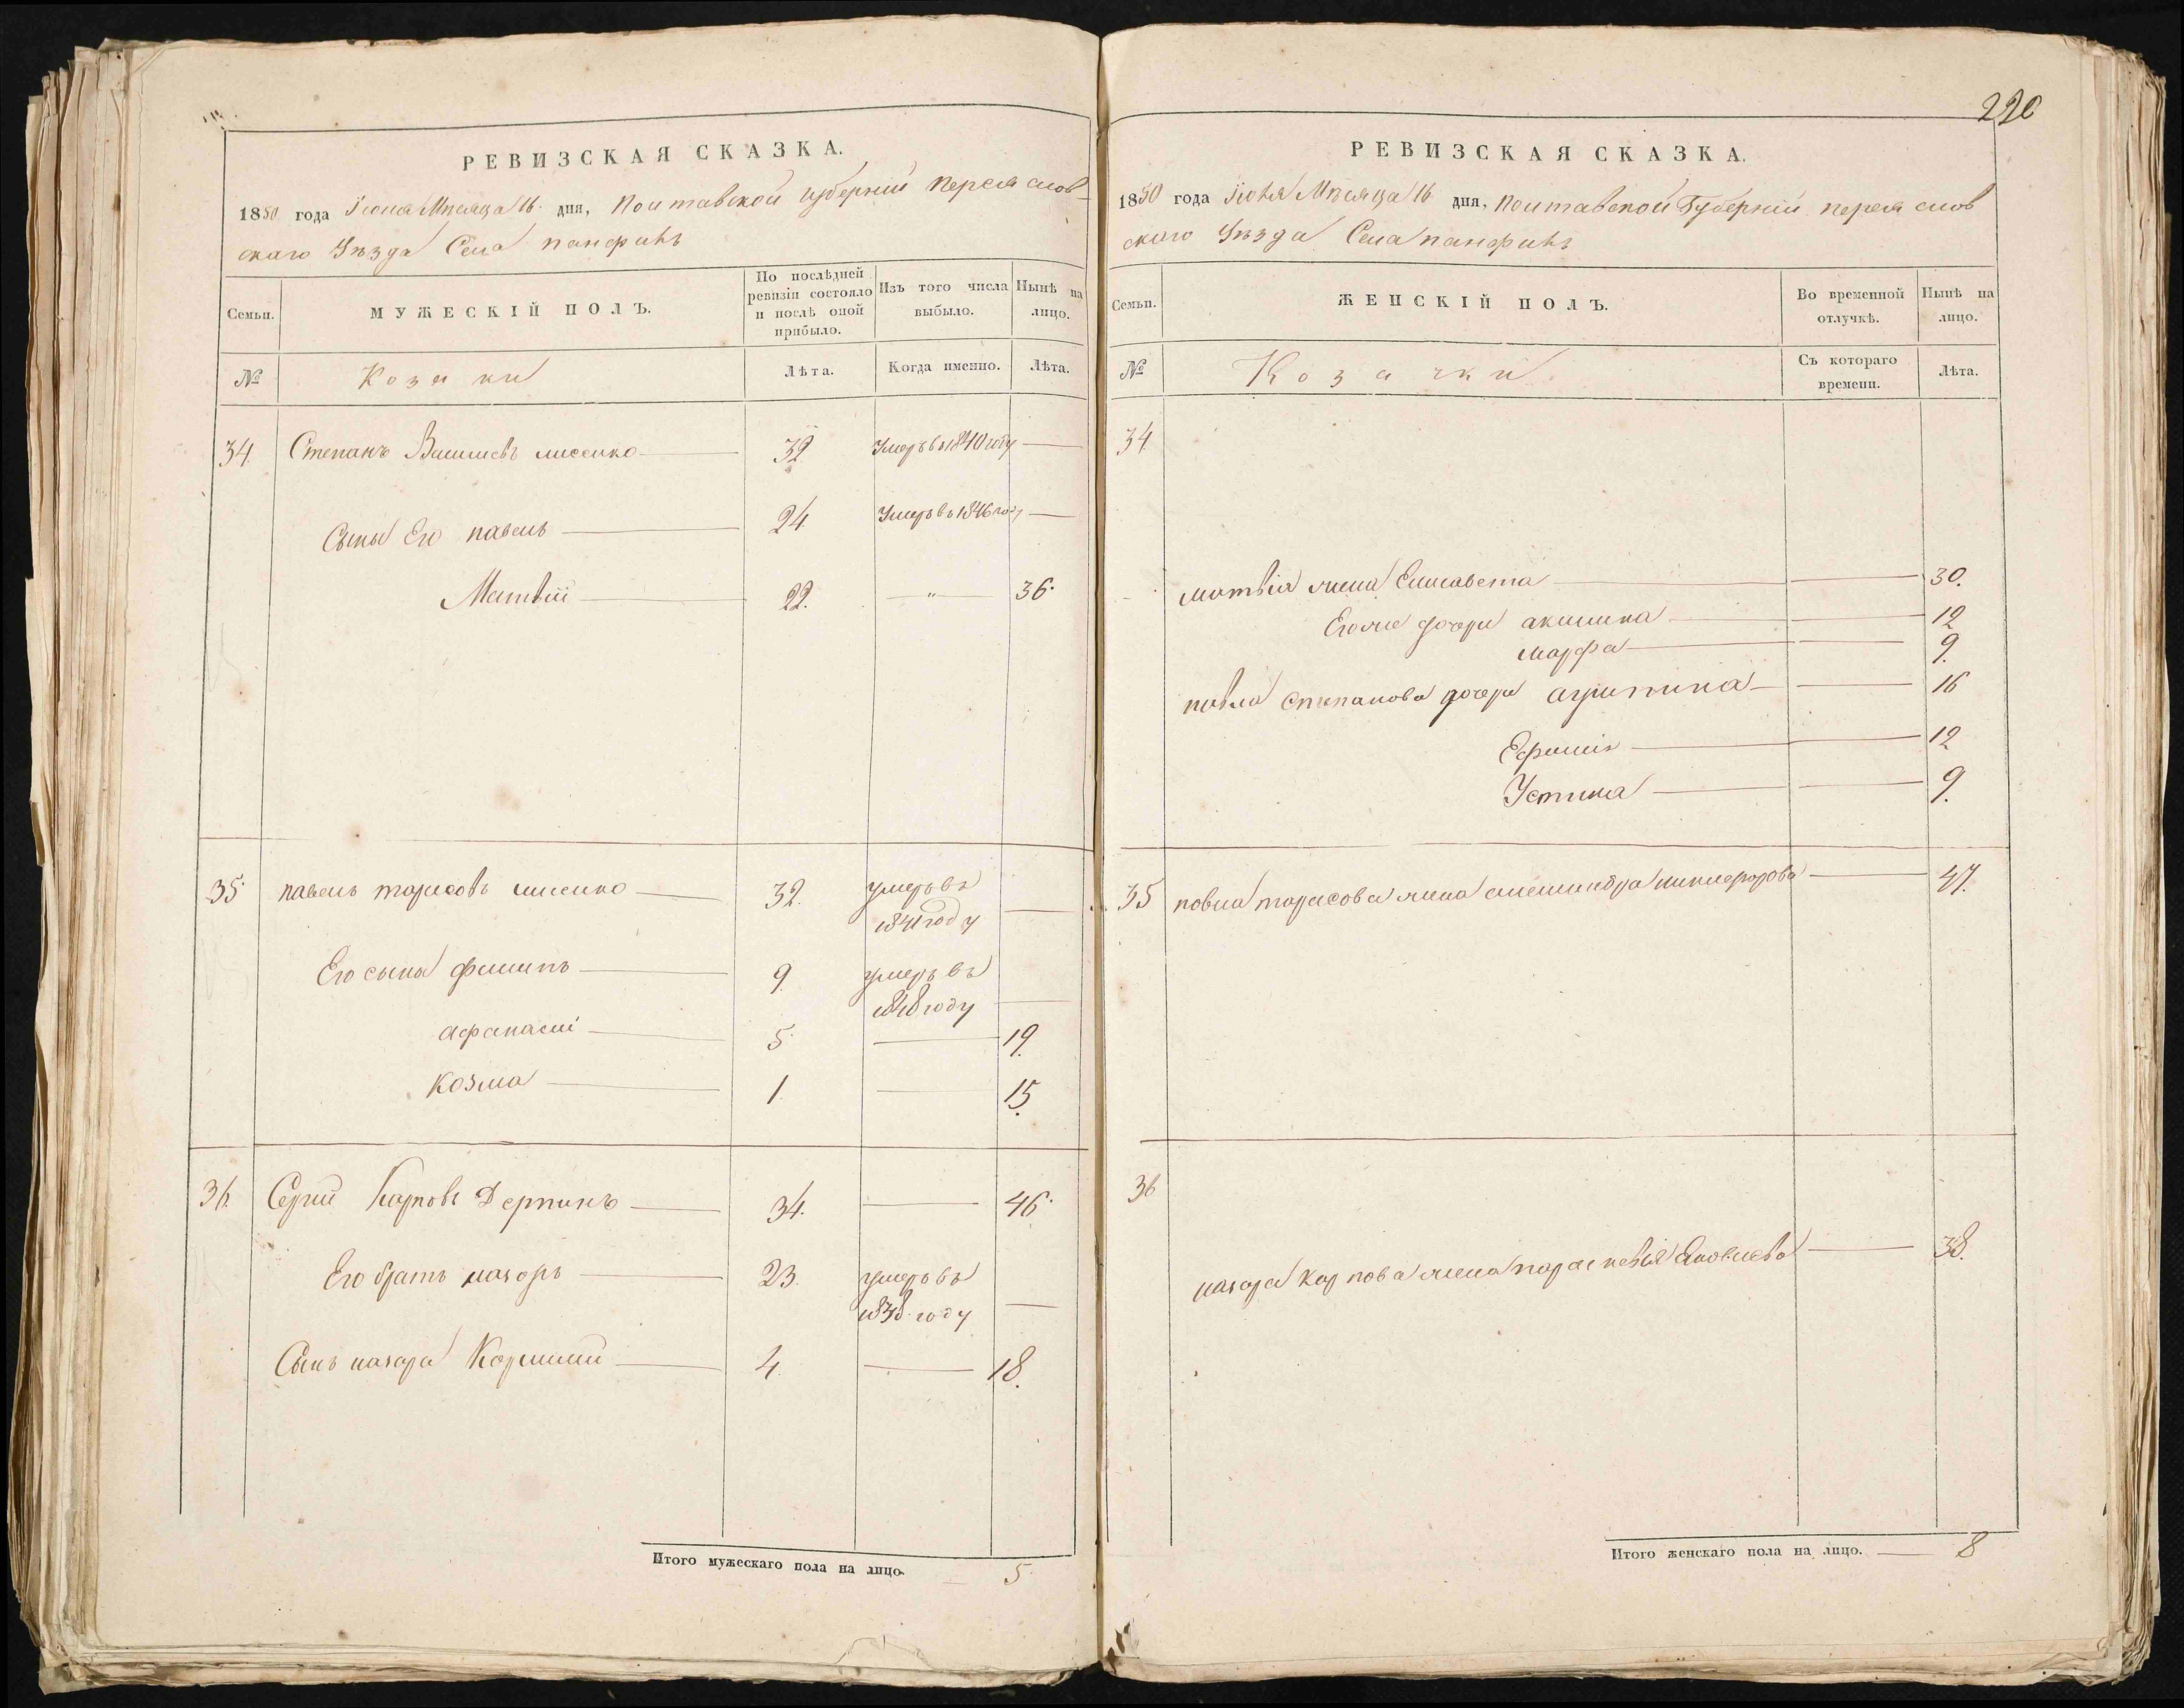 РЕВИЗСКАЯ СКАЗКА.
1850 года Іюня Мѣсяца 16 дня, Полтавской губерніи переяслов-
скаго Уѣзда Села панфилъ
Семьи.
МУЖЕСКІЙ ПОЛЪ.
По послѣдней ревизіи состояло и послѣ оной прибыло.
Изъ того числа выбыло.
Нынѣ на лицо.
№
Козаки
Лѣта.
Когда именно.
Лѣта.
34. Степанъ Василіевъ лисенко 32 Умеръ въ 1840 году
Сыны Его павелъ 24 Умеръ въ 1846 году
Матвій 22. " 36.
35 павелъ тарасовъ лисенко 32. умеръ въ
1841 году
Его сына филипъ 9 умеръ въ
1848 году
афанасиі 5. 19.
козма 1. 15.
36. Сергій Карповъ Дерпинъ 34. 46.
Его братъ назаръ 23. умеръ въ
1838. году
Сынъ назара Корнилий 4. 18.
Итого мужескаго пола на лицо. 5
220
РЕВИЗСКАЯ СКАЗКА.
1850 года Іюня Мѣсяца 16 дня, Полтавской Губерніи переяслов
скаго Уѣзда Села панфилъ
Семьи.
ЖЕНСКІЙ ПОЛЪ.
Во временной отлучкѣ.
Нынѣ на лицо.
№
Козачки
Съ котораго времени.
Лѣта.
34.
матвія жена Елисавета 30.
Его же дочери акилина 12
марфа 9.
павла степанова дочери агрипина 16
Ефимія 12
Устина 9.
35 павла тарасова жена александра никифорова 47.
36
назара карпова жена параскевія Яковлева 38.
Итого женскаго пола на лицо. 8